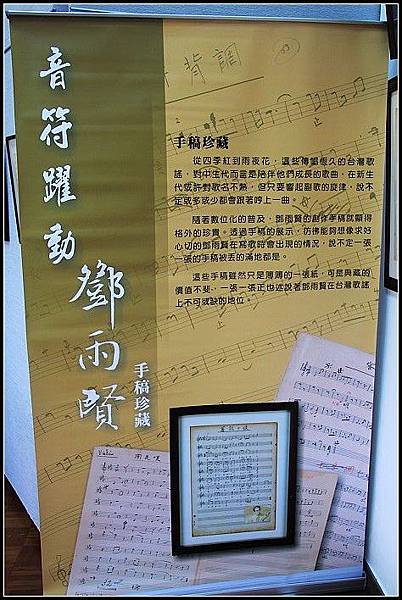 音符躍動
鄧雨賢
手稿珍藏
背調
手稿珍藏
從四季紅到雨夜花，這些傳唱恆久的台灣歌
謠，對中生代而言是陪伴他們成長的歌曲，在新生
代或許對歌名不熟，但只要響起副歌的旋律，說不
定或多或少都會跟著哼上一曲。
隨著數位化的普及，鄧雨賢的創作手稿就顯得
格外的珍貴。透過手稿的展示，彷彿能夠想像求好
心切的鄧雨賢在寫歌時會出現的情況，說不定一張
一張的手稿被丟的滿地都是。
這些手稿雖然只是薄薄的一張紙，可是典藏的
價值不斐，一張一張正也述說著鄧雨賢在台灣歌謠
上不可或缺的地位。